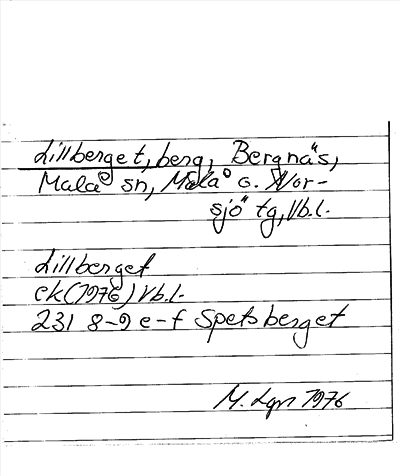 Lillberget, berg, Bergnäs,
Malå sn, Malå o. Nor-
sjö tg, Vb.l.
Lillberget
ek (1976) Vb.l.
231 8-9 e-f Spetsberget
M. Lgn 1976